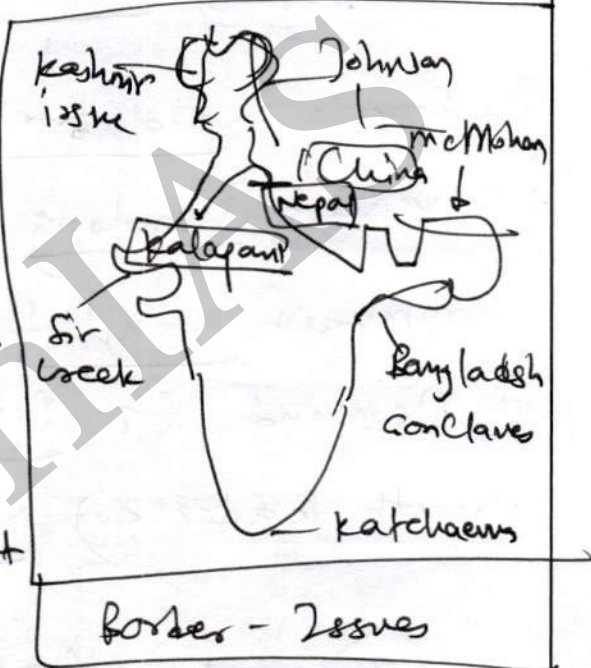 Kashmir
issue
Johnson
McMohan
China
Nepal
Kalapani
Sir
creek
Bangladesh
Conclaves
Border - Issues